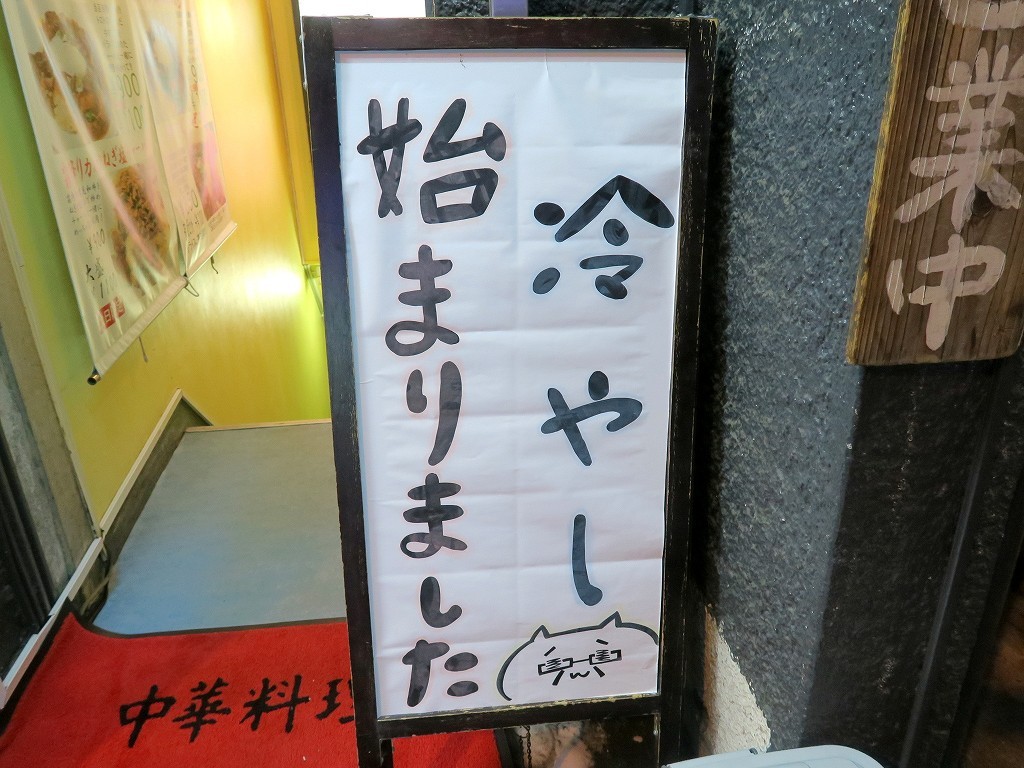 冷やし
始まりました
中華料理
業中